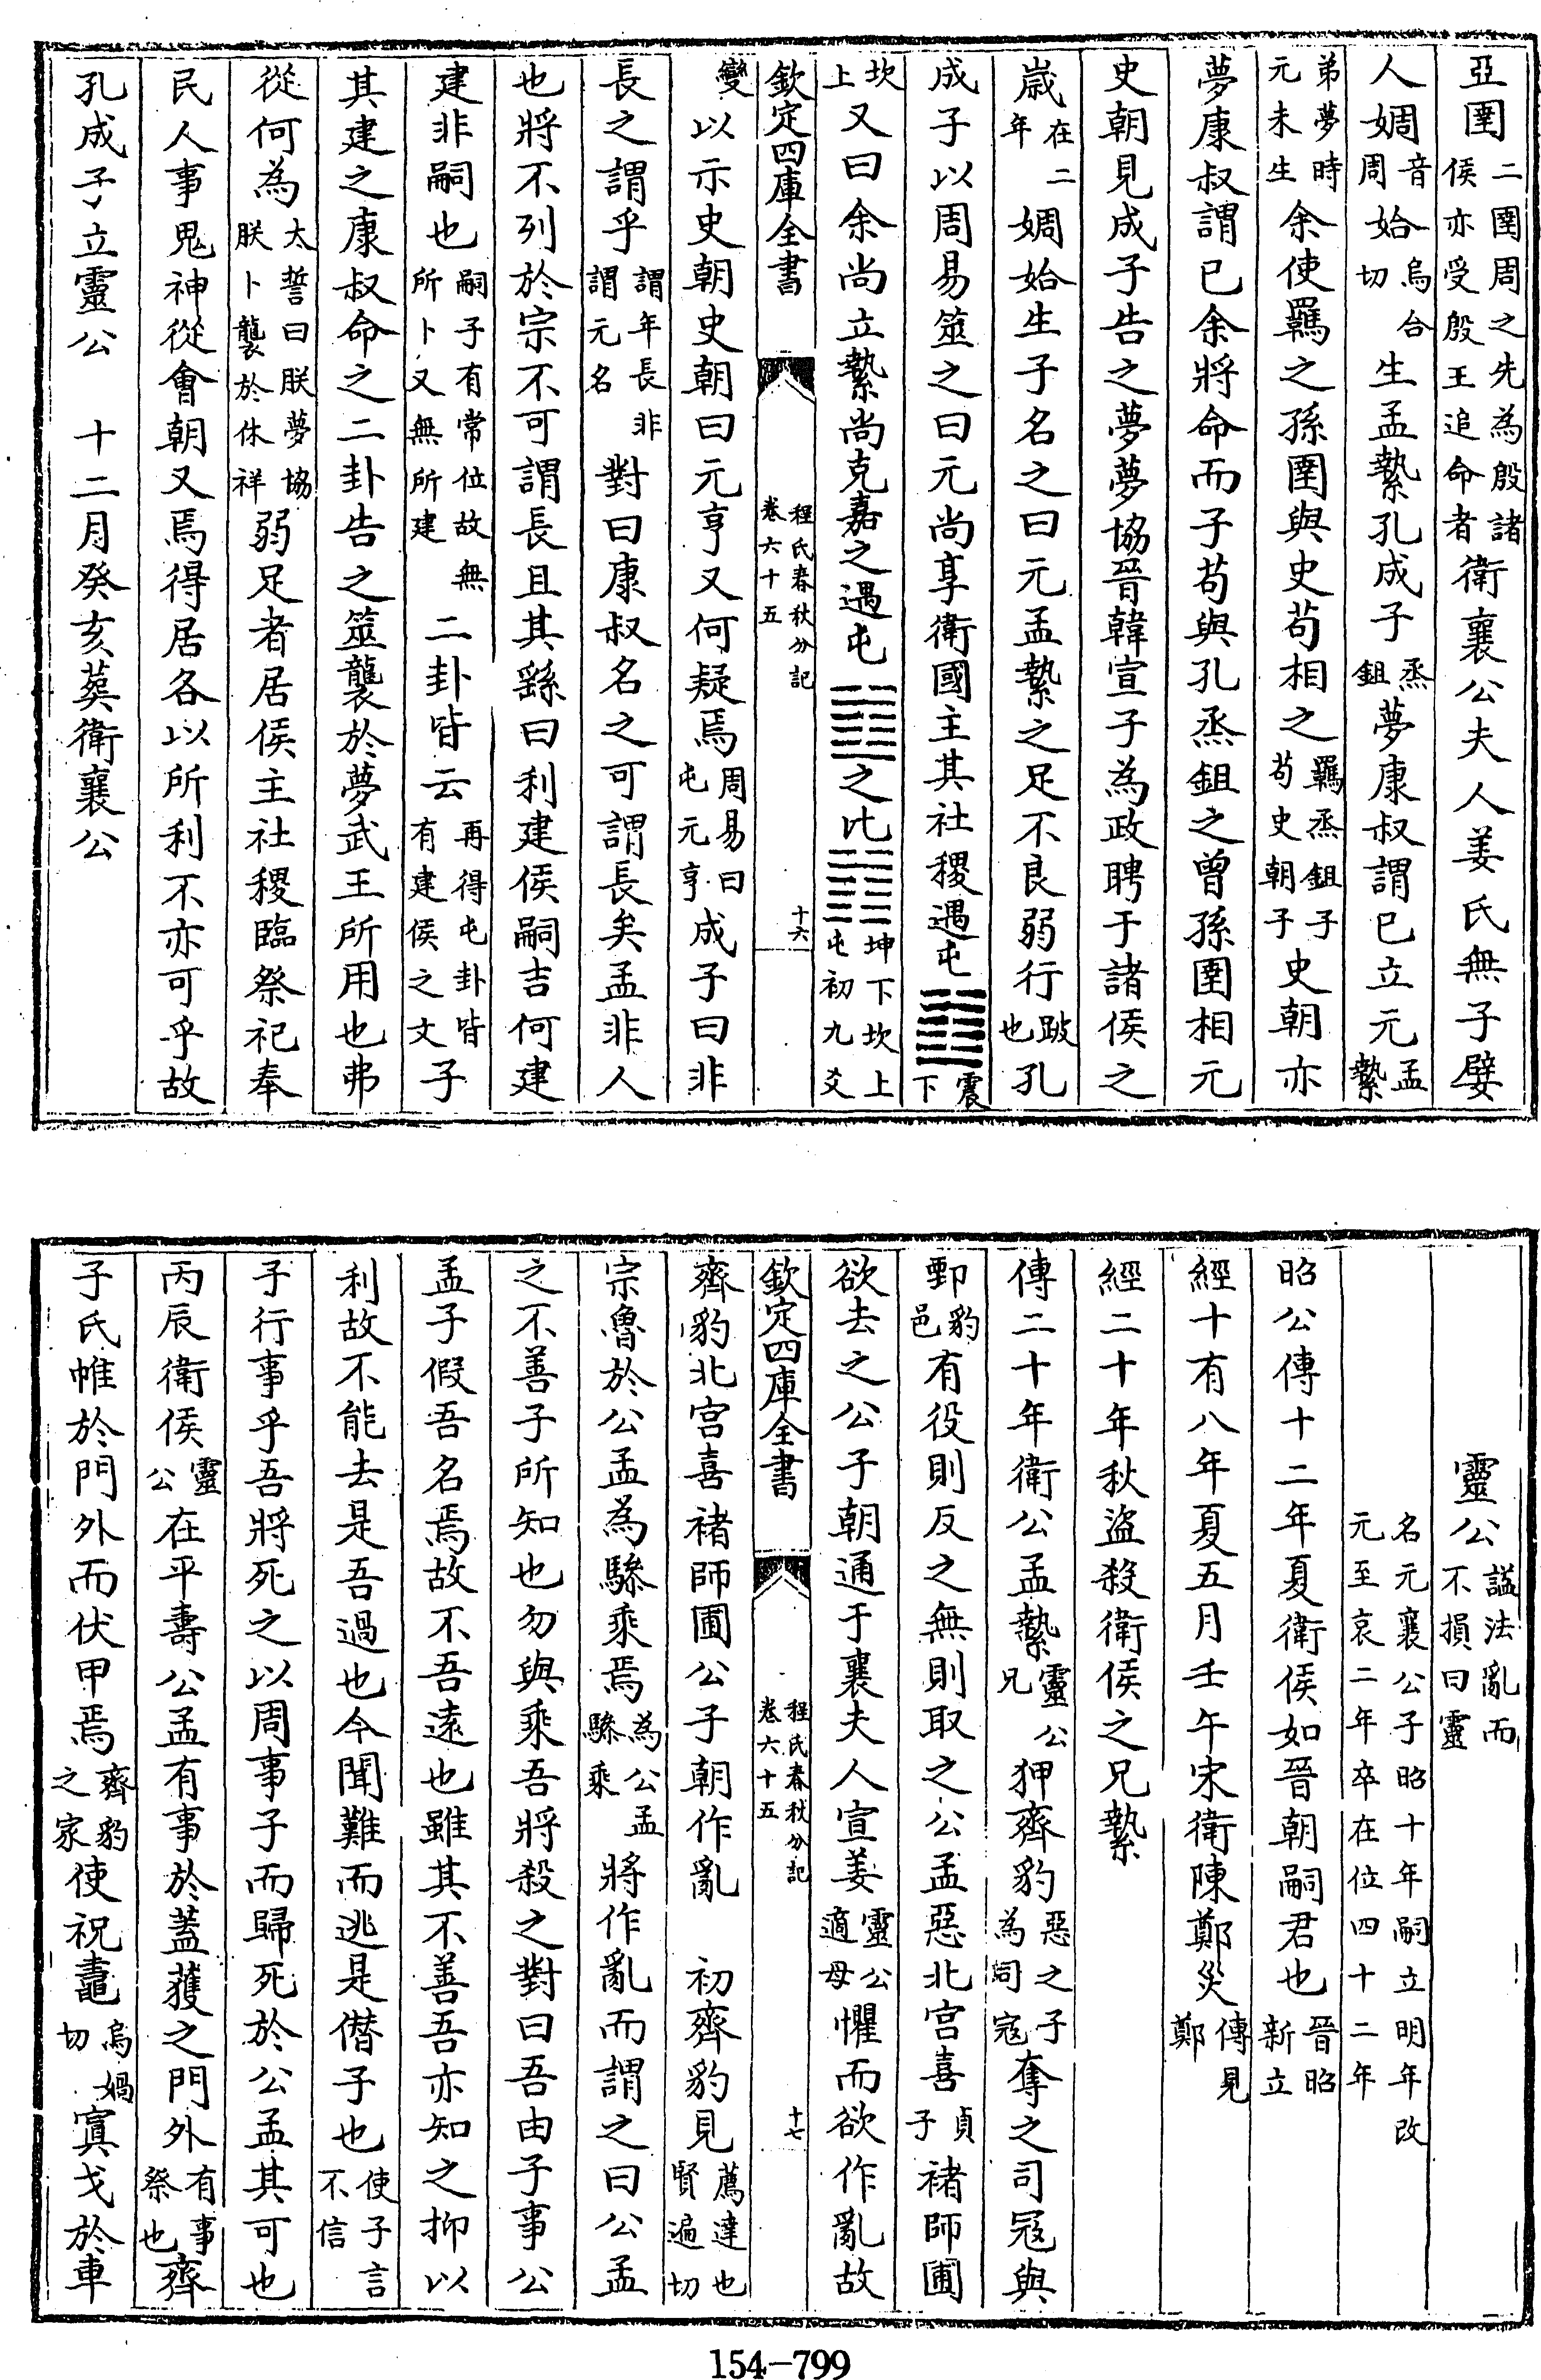 亞圉二圉周之先為殷諸侯亦受殷王追命者衛襄公夫人姜氏無子嬖
人婤音周始烏合切生孟縶孔成子烝鉏夢康叔謂已立元孟縶
弟夢時元未生余使羈之孫圉與史苟相之羈烝鉏子苟史朝子史朝亦
夢康叔謂已余將命而子苟與孔烝鉏之曾孫圉相元
史朝見成子告之夢夢協晉韓宣子為政聘于諸侯之
歲在二年婤始生子名之曰元孟縶之足不良弱行跛也孔
成子以周易筮之曰元尚享衛國主其社稷遇屯䷂震下
坎上又曰余尚立縶尚克嘉之遇屯䷂之比䷇坤下坎上屯初九爻
欽定四庫全書 程氏春秋分記卷六十五 十六
變以示史朝史朝曰元亨又何疑焉周易曰屯元亨成子曰非
長之謂乎謂年長非謂元名對曰康叔名之可謂長矣孟非人
也將不列於宗不可謂長且其繇曰利建侯嗣吉何建
建非嗣也嗣子有常位故無所卜又無所建二卦皆云再得屯卦皆有建侯之文子
其建之康叔命之二卦告之筮襲於夢武王所用也弗
從何為太誓曰朕夢協朕卜襲於休祥弱足者居侯主社稷臨祭祀奉
民人事鬼神從會朝又焉得居各以所利不亦可乎故
孔成子立靈公 十二月癸亥葬衛襄公
靈公諡法亂而不損曰靈
名元襄公子昭十年嗣立明年改元至哀二年卒在位四十二年
昭公傳十二年夏衛侯如晉朝嗣君也晉昭新立
經十有八年夏五月壬午宋衛陳鄭災傳見鄭
經二十年秋盜殺衛侯之兄縶
傳二十年衛公孟縶靈公兄狎齊豹惡之子為司寇奪之司冦與
鄄豹邑有役則反之無則取之公孟惡北宫喜貞子禇師圃
欲去之公子朝通于襄夫人宣姜靈公適母懼而欲作亂故
欽定四庫全書 程氏春秋分記卷六十五 十七
齊豹北宫喜禇師圃公子朝作亂 初齊豹見薦達也賢遍切
宗魯於公孟為驂乘焉為公孟驂乘將作亂而謂之曰公孟
之不善子所知也勿與乘吾將殺之對曰吾由子事公
孟子假吾名焉故不吾遠也雖其不善吾亦知之抑以
利故不能去是吾過也今聞難而逃是僭子也使子言不信
子行事乎吾將死之以周事子而歸死於公孟其可也
丙辰衛侯靈公在平壽公孟有事於蓋獲之門外有事祭也齊
子氏帷於門外而伏甲焉齊豹之家使祝鼃烏媧切寘戈於車
154-799